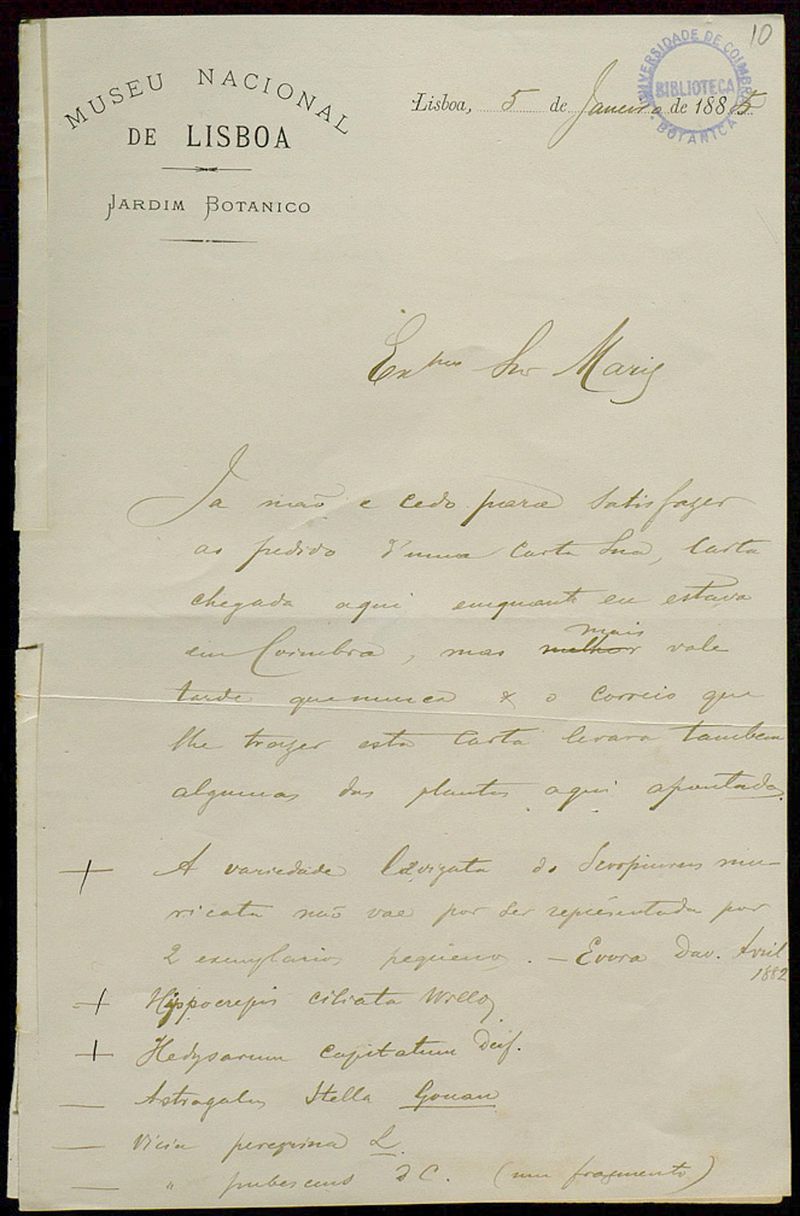 10
UNIVERSIDADE DE COIMBRA
BIBLIOTECA
BOTANICA
MUSEU NACIONAL
DE LISBOA
JARDIM BOTANICO
Lisboa, 5 de Janeiro de 1885
Exmo Snr Mariz
Ja não e cedo para satisfazer
ao pedido d'uma carta sua, carta
chegada aqui emquanto eu estava
em Coimbra, mas melhor mais vale
tarde que nunca & o correio que
lhe trazer esta carta levara tambem
algumas das plantas aqui apontadas
+ A variedade lævigata do Scorpiurus mu-
ricata não vae por ser représentada por
2 exemplarios pequenos. - Evora Dav. Avril
1882
+ Hippocrepis ciliata Willd
+ Hedysarum capitatum Desf.
— Astragalus Stella Gouan
— Vicia peregrina L.
— " pubescens DC. (um fragmento)